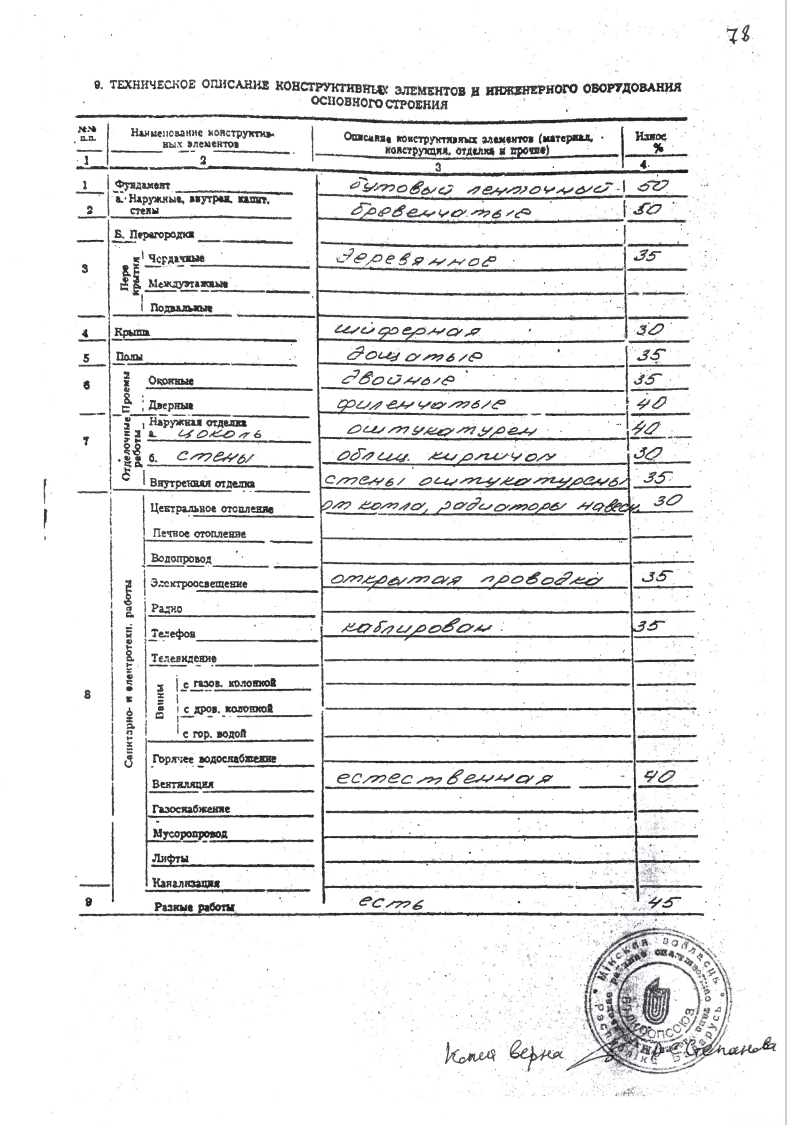 78
9. ТЕХНИЧЕСКОЕ ОПИСАНИЕ КОНСТРУКТИВНЫХ ЭЛЕМЕНТОВ И ИНЖЕНЕРНОГО ОБОРУДОВАНИЯ
ОСНОВНОГО СТРОЕНИЯ
№№ п.п. Наименование конструктив-ных элементов Описание конструктивных элементов (материал, конструкция, отделка и прочие) Износ %
1 2 3 4
1 Фундамент бутовый ленточный 50
2 а. Наружные, внутрен. капит. стены бревенчатые 50
Б. Перегородки
3 Пере крытия Чердачные деревянное 35
Междуэтажные
Подвальные
4 Крыша шиферная 30
5 Полы дощатые 35
6 Проемы Оконные двойные 35
Дверные филенчатые 40
7 Отделочные работы Наружная отделка
а. цоколь оштукатурен 40
б. стены облиц. кирпичом 30
Внутренняя отделка стены оштукатурены 35
8 Санитарно- и электротехн. работы Центральное отопление от котла, радиаторы навесн. 30
Печное отопление
Водопровод
Электроосвещение открытая проводка 35
Радио
Телефон каблирован 35
Телевидение
Ванны с газов. колонкой
с дров. колонкой
с гор. водой
Горячее водоснабжение
Вентиляция естественная 40
Газоснабжение
Мусоропровод
Лифты
Канализация
9 Разные работы есть 45
Мінская вобласць
Рэспубліка Беларусь
Копия верна Степанова